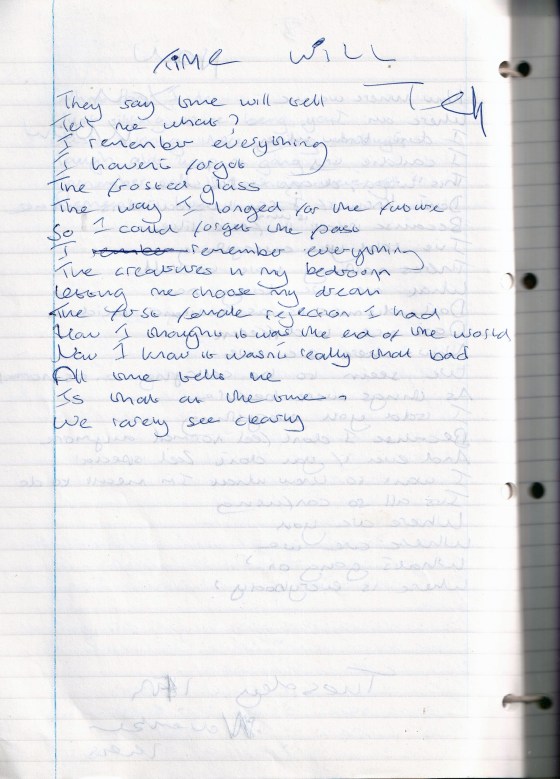 TIME WILL
Tell
They say time will tell
Tell me what?
I remember everything
I haven't forgot
The frosted glass
The way I longed for the future
So I could forget the past
I remember everything
The creatures in my bedroom
Letting me choose my dream
The first female rejection I had
How I thought it was the end of the world
Now I know it wasn't really that bad
All time tells me
Is that at the time
We rarely see clearly